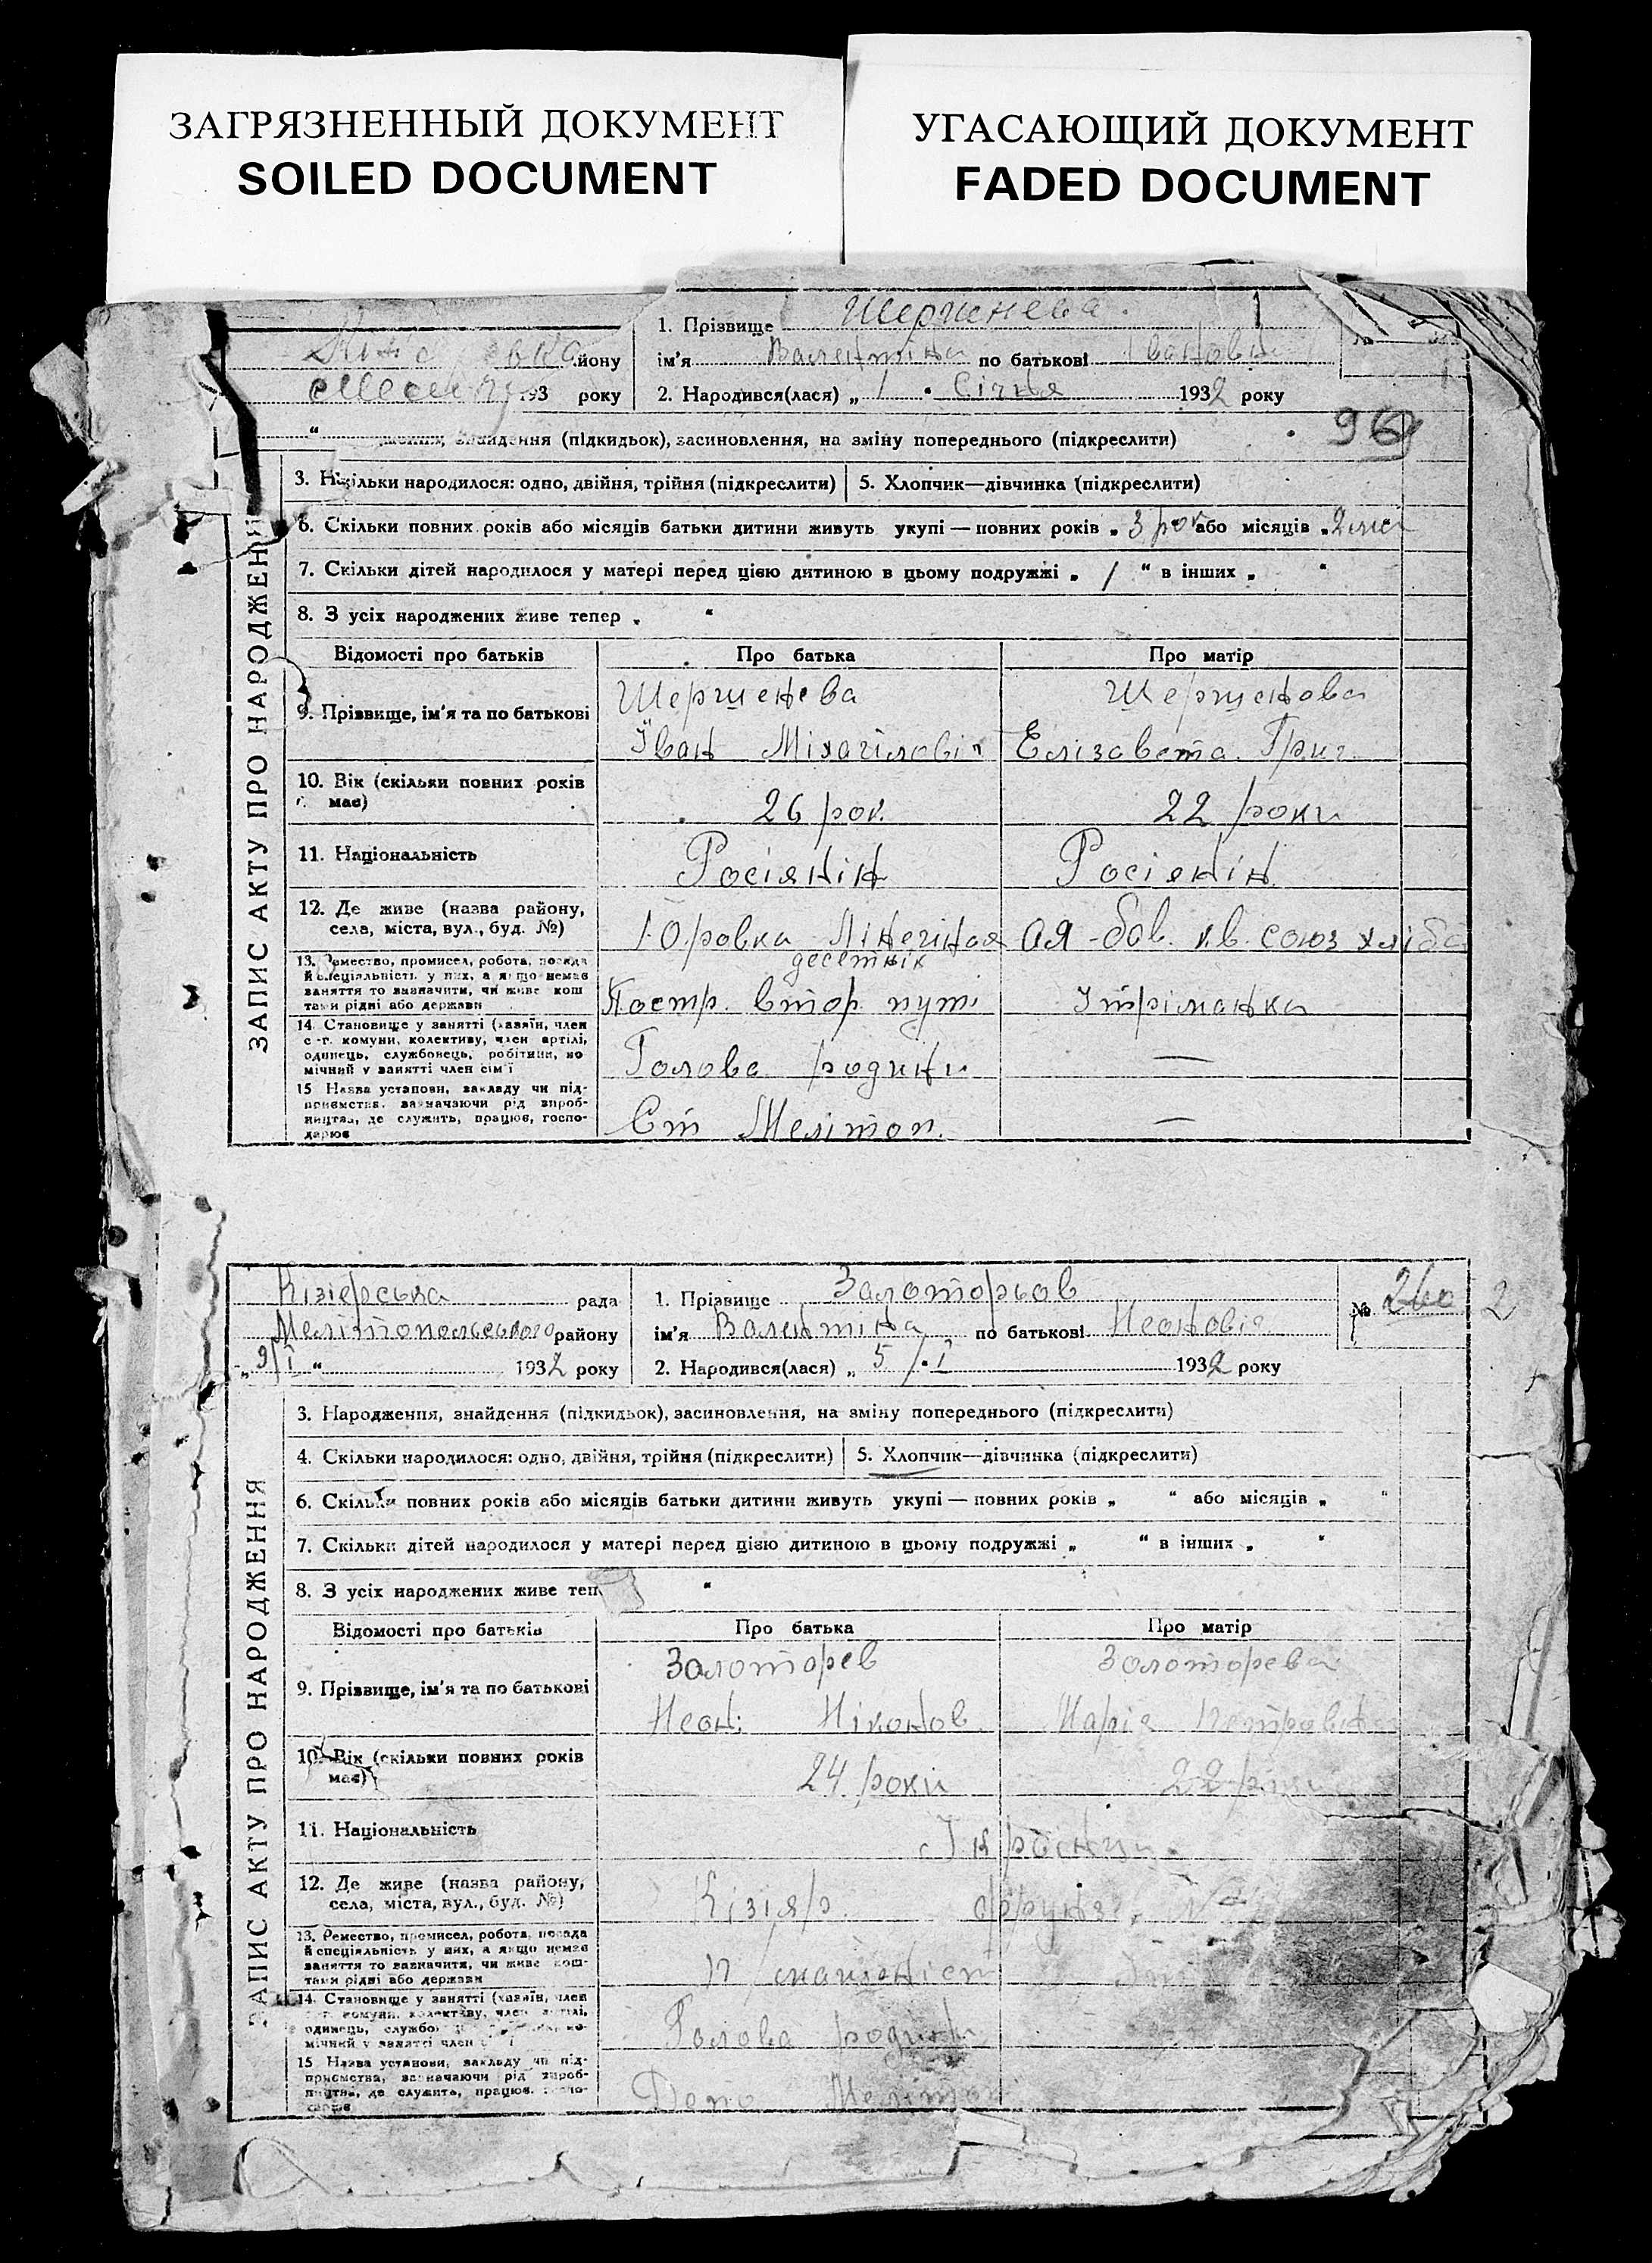 ЗАГРЯЗНЕННЫЙ ДОКУМЕНТ
SOILED DOCUMENT
УГАСАЮЩИЙ ДОКУМЕНТ
FADED DOCUMENT
йону
193 року
1. Прізвище Шершнева
ім'я Валентіна по батькові Івановн
2. Народився(лася) „ 1 " Січня 1932 року
1
96
знайдення (підкидьок), засиновлення, на зміну попереднього (підкреслити)
ЗАПИС АКТУ ПРО НАРОДЖЕННЯ
3. Скільки народилося: одно, двійня, трійня (підкреслити) 5. Хлопчик—дівчинка (підкреслити)
6. Скільки повних років або місяців батьки дитини живуть укупі — повних років „ 3 рок або місяців „ 2 міс
7. Скільки дітей народилося у матері перед цією дитиною в цьому подружжі „ 1 “ в інших „ “
8. З усіх народжених живе тепер „ “
Відомості про батьків Про батька Про матір
9. Прізвище, ім'я та по батькові
Шершнева Шершнова
Іван Міхаіловіч Елізавета Григ.
10. Вік (скільки повних років має) 26 рок. 22 роки
11. Національність Росіянін Росіянін
12. Де живе (назва району, села, міста, вул., буд. №) Юровка Лінечіная
союз хліба
13. Ремество, промисел, робота, посада й спеціяльність у них, а якщо немає заняття то зазначити, чи живе коштами рідні або держави
десетнік
Постр. втор. пут. Утріманка
14. Становище у занятті (хазяїн, член с.-г. комуни, колективу, член артілі, одинець, службовець, робітник, помічний у занятті член сім'ї Голова родини —
15 Назва установи, закладу чи підприємства, зазначаючи рід виробництва, де служить, працює, господарює Ст Мелітоп. —
Кізіерська рада
Мелітопольського району
„ 9/I “ 1932 року
1. Прізвище Золоторьов
ім'я Валентіна по батькові Неоновіч
2. Народився(лася) „ 5 / I 1932 року
№ 260 2
ЗАПИС АКТУ ПРО НАРОДЖЕННЯ
3. Народження, знайдення (підкидьок), засиновлення, на зміну попереднього (підкреслити)
4. Скільки народилося: одно, двійня, трійня (підкреслити) 5. Хлопчик—дівчинка (підкреслити)
6. Скільки повних років або місяців батьки дитини живуть укупі — повних років „ “ або місяців „ “
7. Скільки дітей народилося у матері перед цією дитиною в цьому подружжі „ “ в інших „ “
8. З усіх народжених живе теп “
Відомості про батьків Про батька Про матір
9. Прізвище, ім'я та по батькові
Золоторев Золоторева
Неон: Ніконов Марія Петровн
10. Вік (скільки повних років має) 24 роки 22 роки
11. Національність
12. Де живе (назва району, села, міста, вул., буд. №) Кізіяр. Фрунзе,
13. Ремество, промисел, робота, посада й спеціяльність у них, а якщо немає заняття то зазначити, чи живе коштами рідні або держави
14. Становище у занятті (хазяїн, член с.-г. комуни, колективу, член артілі, одинець, службовець, помічний у занятті член Голова родини
15 Назва установи, закладу чи підприємства, зазначаючи рід виробництва, де служить, працює, господарює Депо Меліт